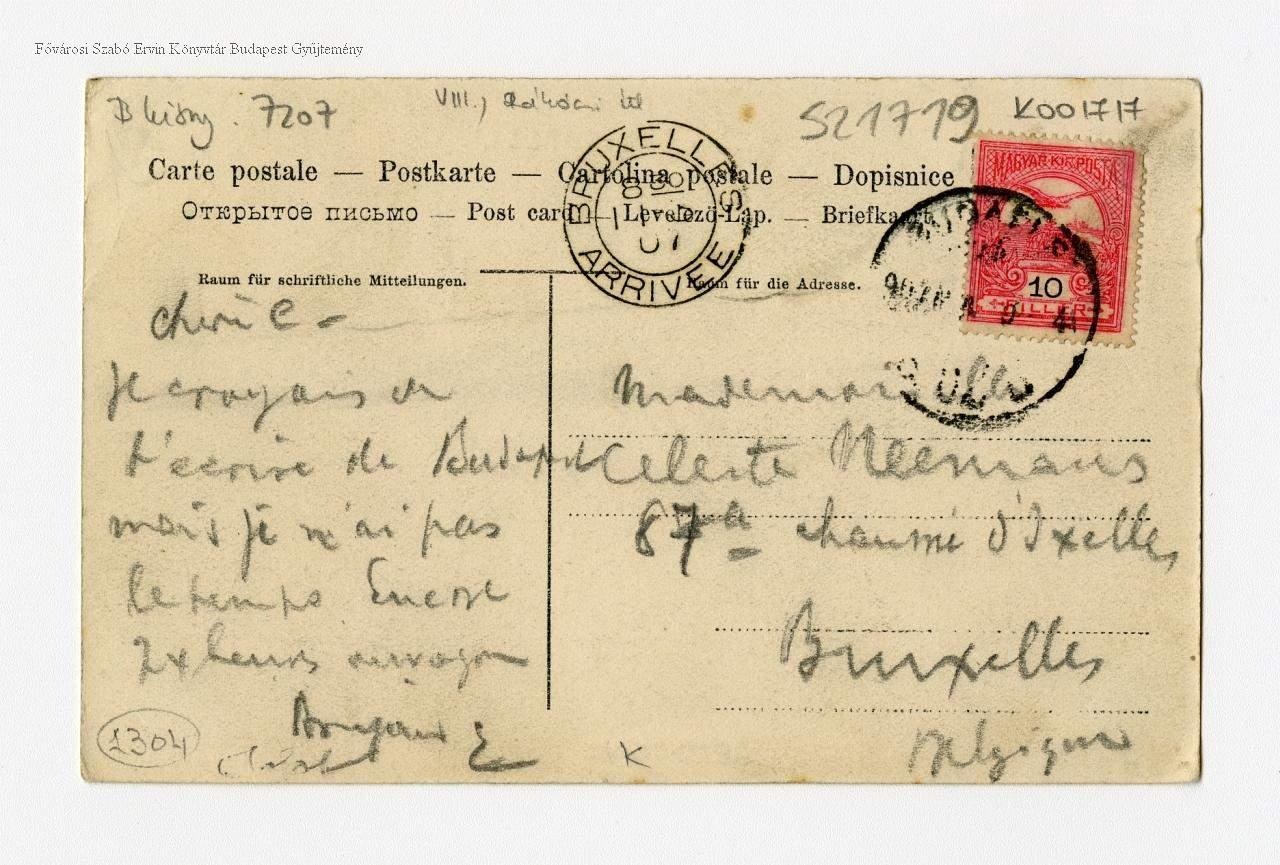 Fővárosi Szabó Ervin Könyvtár Budapest Gyűjtemény
7207
VIII., Rákóczi út
521719
K001717
Carte postale — Postkarte — Cartolina postale — Dopisnice
Открытое письмо — Post card — Levelező-Lap. — Briefkaart
BRUXELLES
ARRIVEE
07
MAGYAR KIR. POSTA
10
FILLÉR
BUDAPEST
Raum für schriftliche Mitteilungen.
Raum für die Adresse.
cherie -
Je croyais de
t'écrire de Budapest
mais je n'ai pas
le temps Encore
heures
Mademoiselle
Celeste Neemans
87a d'Ixelles
Bruxelles
Belgique
1304
K